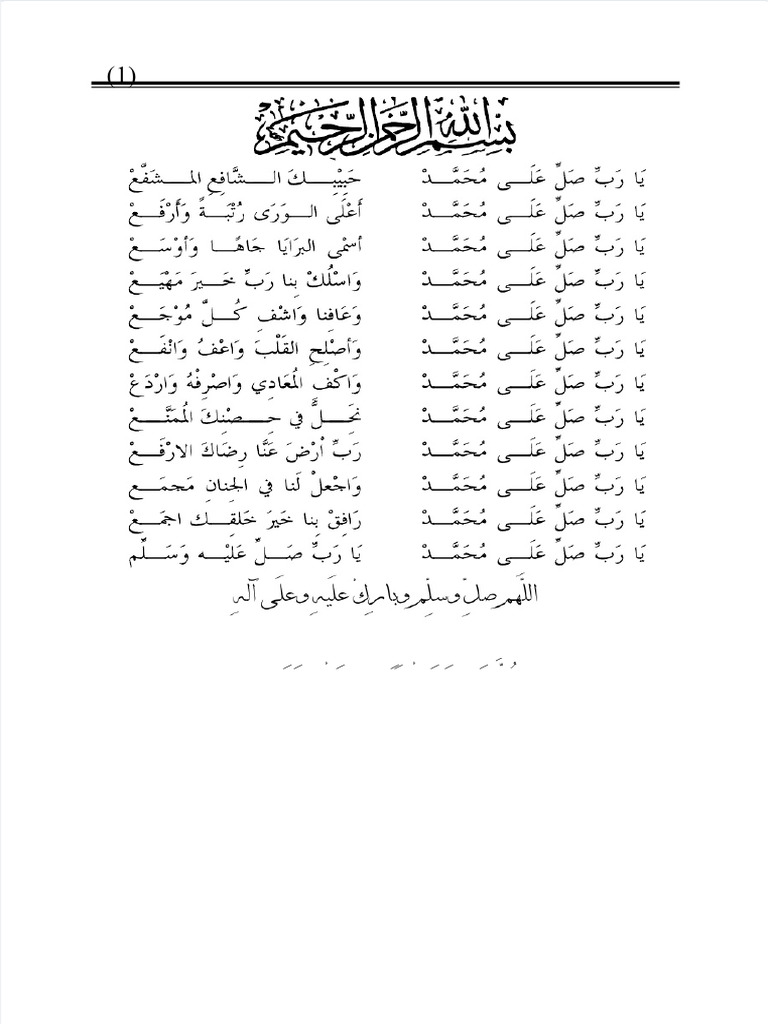 (1)
بِسْمِ اللهِ الرَّحْمنِ الرَّحِيْمِ
يَا رَبِّ صَلِّ عَلَى مُحَمَّدْ حَبِيْبِكَ الشَّافِعِ المـشَفَّعْ
يَا رَبِّ صَلِّ عَلَى مُحَمَّدْ أَعْلَى الوَرَى رُتْبَةً وَأَرْفَعْ
يَا رَبِّ صَلِّ عَلَى مُحَمَّدْ أسْمٰى البرَايَا جَاهًا وَأوْسَعْ
يَا رَبِّ صَلِّ عَلَى مُحَمَّدْ وَاسْلُكْ بِنا رَبِّ خَيرَ مَهْيَعْ
يَا رَبِّ صَلِّ عَلَى مُحَمَّدْ وَعَافِنا وَاشْفِ كُلَّ مُوْجَعْ
يَا رَبِّ صَلِّ عَلَى مُحَمَّدْ وَأصْلِحِ القَلْبَ وَاعْفُ وَانْفَعْ
يَا رَبِّ صَلِّ عَلَى مُحَمَّدْ وَاكْفِ المُعَادِي وَاصْرِفْهُ وَارْدَعْ
يَا رَبِّ صَلِّ عَلَى مُحَمَّدْ نَحِلُّ في حِصْنِكَ المُمَنَّعْ
يَا رَبِّ صَلِّ عَلَى مُحَمَّدْ رَبِّ أرْضَ عَنَّا رِضَاكَ الارْفَعْ
يَا رَبِّ صَلِّ عَلَى مُحَمَّدْ وَاجْعلْ لَنا في الجِنانِ مَجمَعْ
يَا رَبِّ صَلِّ عَلَى مُحَمَّدْ رَافِقْ بِنا خَيرَ خَلقِك اجمَعْ
يَا رَبِّ صَلِّ عَلَى مُحَمَّدْ يَا رَبِّ صَلِّ عَلَيْه وَسَلِّم
اللَّهم صلِّ وسلِّم وبارِكْ علَيهِ وعلَى آلهِ